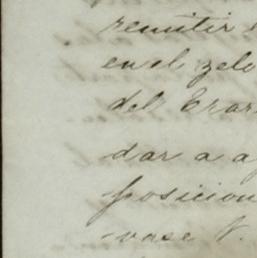 remitir
en el zelo
del Erar
dar a a
posicion
vase V.